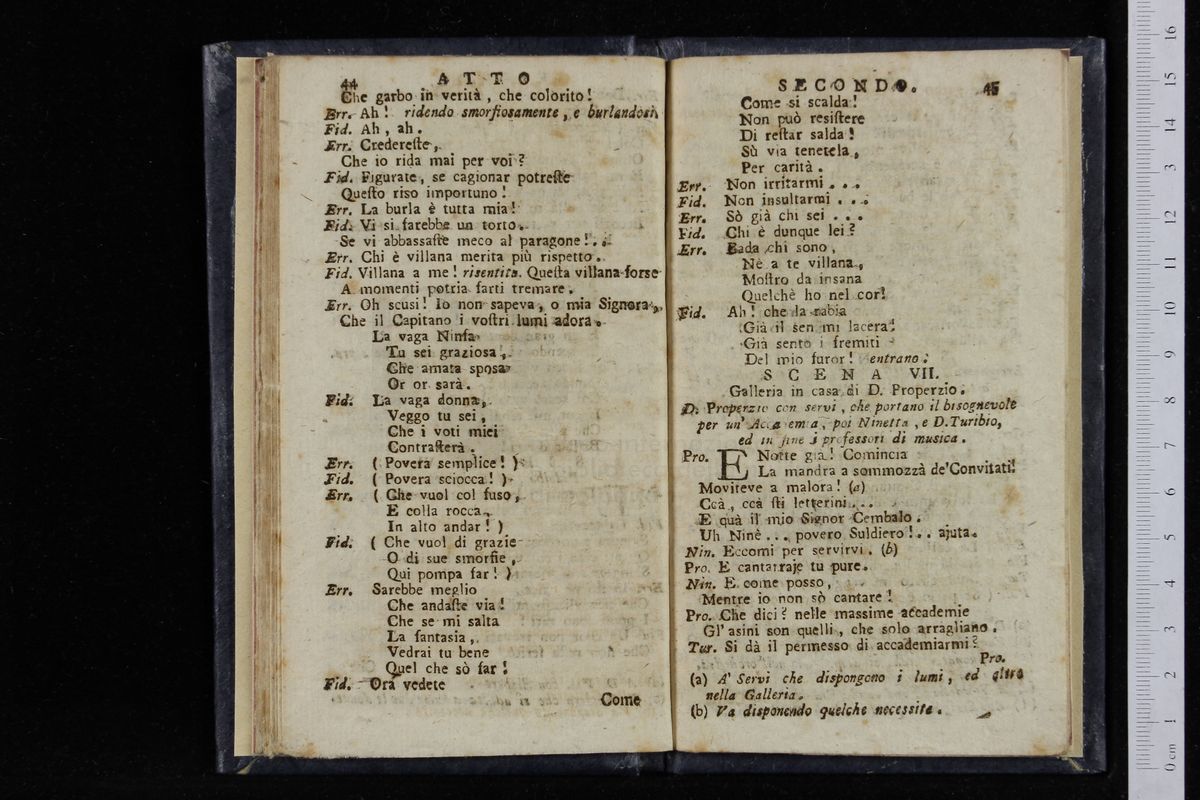 44 ATTO
Che garbo in verità, che colorito!
Err. Ah! ridendo smorfiosamente, e burlandosi,
Fid. Ah, ah.
Err. Credereſte,
Che io rida mai per voi?
Fid. Figurate, se cagionar potreſte
Queſto riso importuno!
Err. La burla è tutta mia!
Fid. Vi si farebbe un torto.
Se vi abbassaſte meco al paragone!..
Err. Chi è villana merita più rispetto.
Fid. Villana a me! risentita. Queſta villana forse
A momenti potria farti tremare.
Err. Oh scusi! Io non sapeva, o mia Signora,
Che il Capitano i voſtri lumi adora.
La vaga Ninfa
Tu sei graziosa,
Che amata sposa
Or or sarà.
Fid. La vaga donna,
Veggo tu sei,
Che i voti miei
Contraſterà.
Err. (Povera semplice!)
Fid. (Povera sciocca!)
Err. (Che vuol col fuso,
E colla rocca,
In alto andar!)
Fid. (Che vuol di grazie
O di sue smorfie,
Qui pompa far!)
Err. Sarebbe meglio
Che andaſte via!
Che se mi salta
La fantasia,
Vedrai tu bene
Quel che sò far!
Fid. Ora vedete
Come
SECONDO. 45
Come si scalda!
Non può resiſtere
Di reſtar salda!
Sù via tenetela,
Per carità.
Err. Non irritarmi...
Fid. Non insultarmi...
Err. Sò già chi sei...
Fid. Chi è dunque lei?
Err. Bada chi sono,
Nè a te villana,
Moſtro da insana
Quelchè ho nel cor!
Fid. Ah! che la rabia
Già il sen mi lacera!
Già sento i fremiti
Del mio furor! entrano.
SCENA VII.
Galleria in casa di D. Properzio.
D. Properzio con servi, che portano il bisognevole
per un' Accademia, poi Ninetta, e D. Turibio,
ed in fine i professori di musica.
Pro. E Notte già! Comincia
La mandra a sommozzà de' Convitati!
Moviteve a malora! (a)
Ccà, ccà ſti letterini...
E quà il mio Signor Cembalo.
Uh Ninè... povero Suldiero!.. ajuta.
Nin. Eccomi per servirvi. (b)
Pro. E cantarraje tu pure.
Nin. E come posso,
Mentre io non sò cantare!
Pro. Che dici? nelle massime accademie
Gl' asini son quelli, che solo arragliano.
Tur. Si dà il permesso di accademiarmi?
Pro.
(a) A' Servi che dispongono i lumi, ed altro
nella Galleria.
(b) Va disponendo quelche necessita.
0 cm 1 2 3 4 5 6 7 8 9 10 11 12 13 14 15 16